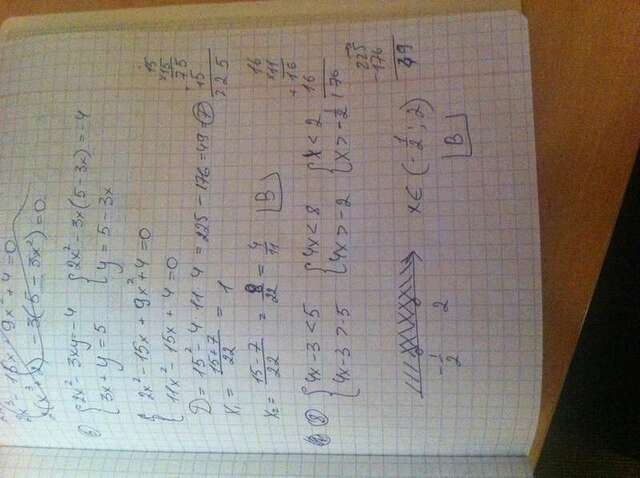 2x³ - 15x + 9x² + 4 = 0
- 3(5 - 3x²) = 0
{ 2x² - 3xy = -4 { 2x² - 3x(5 - 3x) = -4
{ 3x + y = 5 { y = 5 - 3x
{ 2x² - 15x + 9x² + 4 = 0
{ 11x² - 15x + 4 = 0
D = 15² - 4·11·4 = 225 - 176 = 49 = 7
x₁ = (15+7)/22 = 1
x₂ = (15-7)/22 = 8/22 = 4/11 B
15
×15
75
15
225
16
×11
+16
16
176
225
-176
49
⑧ { 4x - 3 < 5 { 4x < 8 { x < 2
{ 4x - 3 > -5 { 4x > -2 { x > -1/2
-1/2 2 x ∈ (-1/2; 2)
B